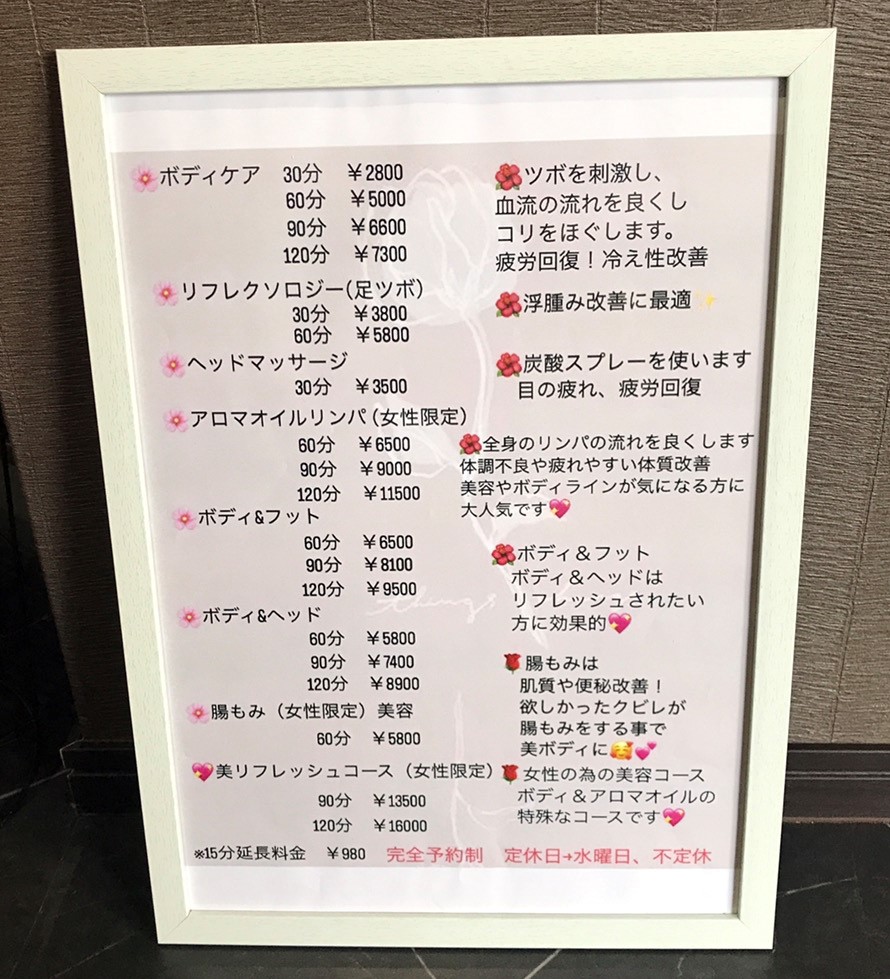 🌸ボディケア 30分 ¥2800
60分 ¥5000
90分 ¥6600
120分 ¥7300
🌺ツボを刺激し、
血流の流れを良くし
コリをほぐします。
疲労回復！冷え性改善
🌸リフレクソロジー(足ツボ)
30分 ¥3800
60分 ¥5800
🌺浮腫み改善に最適✨
🌸ヘッドマッサージ
30分 ¥3500
🌺炭酸スプレーを使います
目の疲れ、疲労回復
🌸アロマオイルリンパ(女性限定)
60分 ¥6500
90分 ¥9000
120分 ¥11500
🌺全身のリンパの流れを良くします
体調不良や疲れやすい体質改善
美容やボディラインが気になる方に
大人気です💖
🌸ボディ&フット
60分 ¥6500
90分 ¥8100
120分 ¥9500
🌸ボディ&ヘッド
60分 ¥5800
90分 ¥7400
120分 ¥8900
🌺ボディ＆フット
ボディ＆ヘッドは
リフレッシュされたい
方に効果的💖
🌸腸もみ（女性限定）美容
60分 ¥5800
🌹腸もみは
肌質や便秘改善！
欲しかったクビレが
腸もみをする事で
美ボディに🥰💕
💖美リフレッシュコース（女性限定）
90分 ¥13500
120分 ¥16000
🌹女性の為の美容コース
ボディ＆アロマオイルの
特殊なコースです💖
※15分延長料金 ¥980 完全予約制 定休日→水曜日、不定休
things